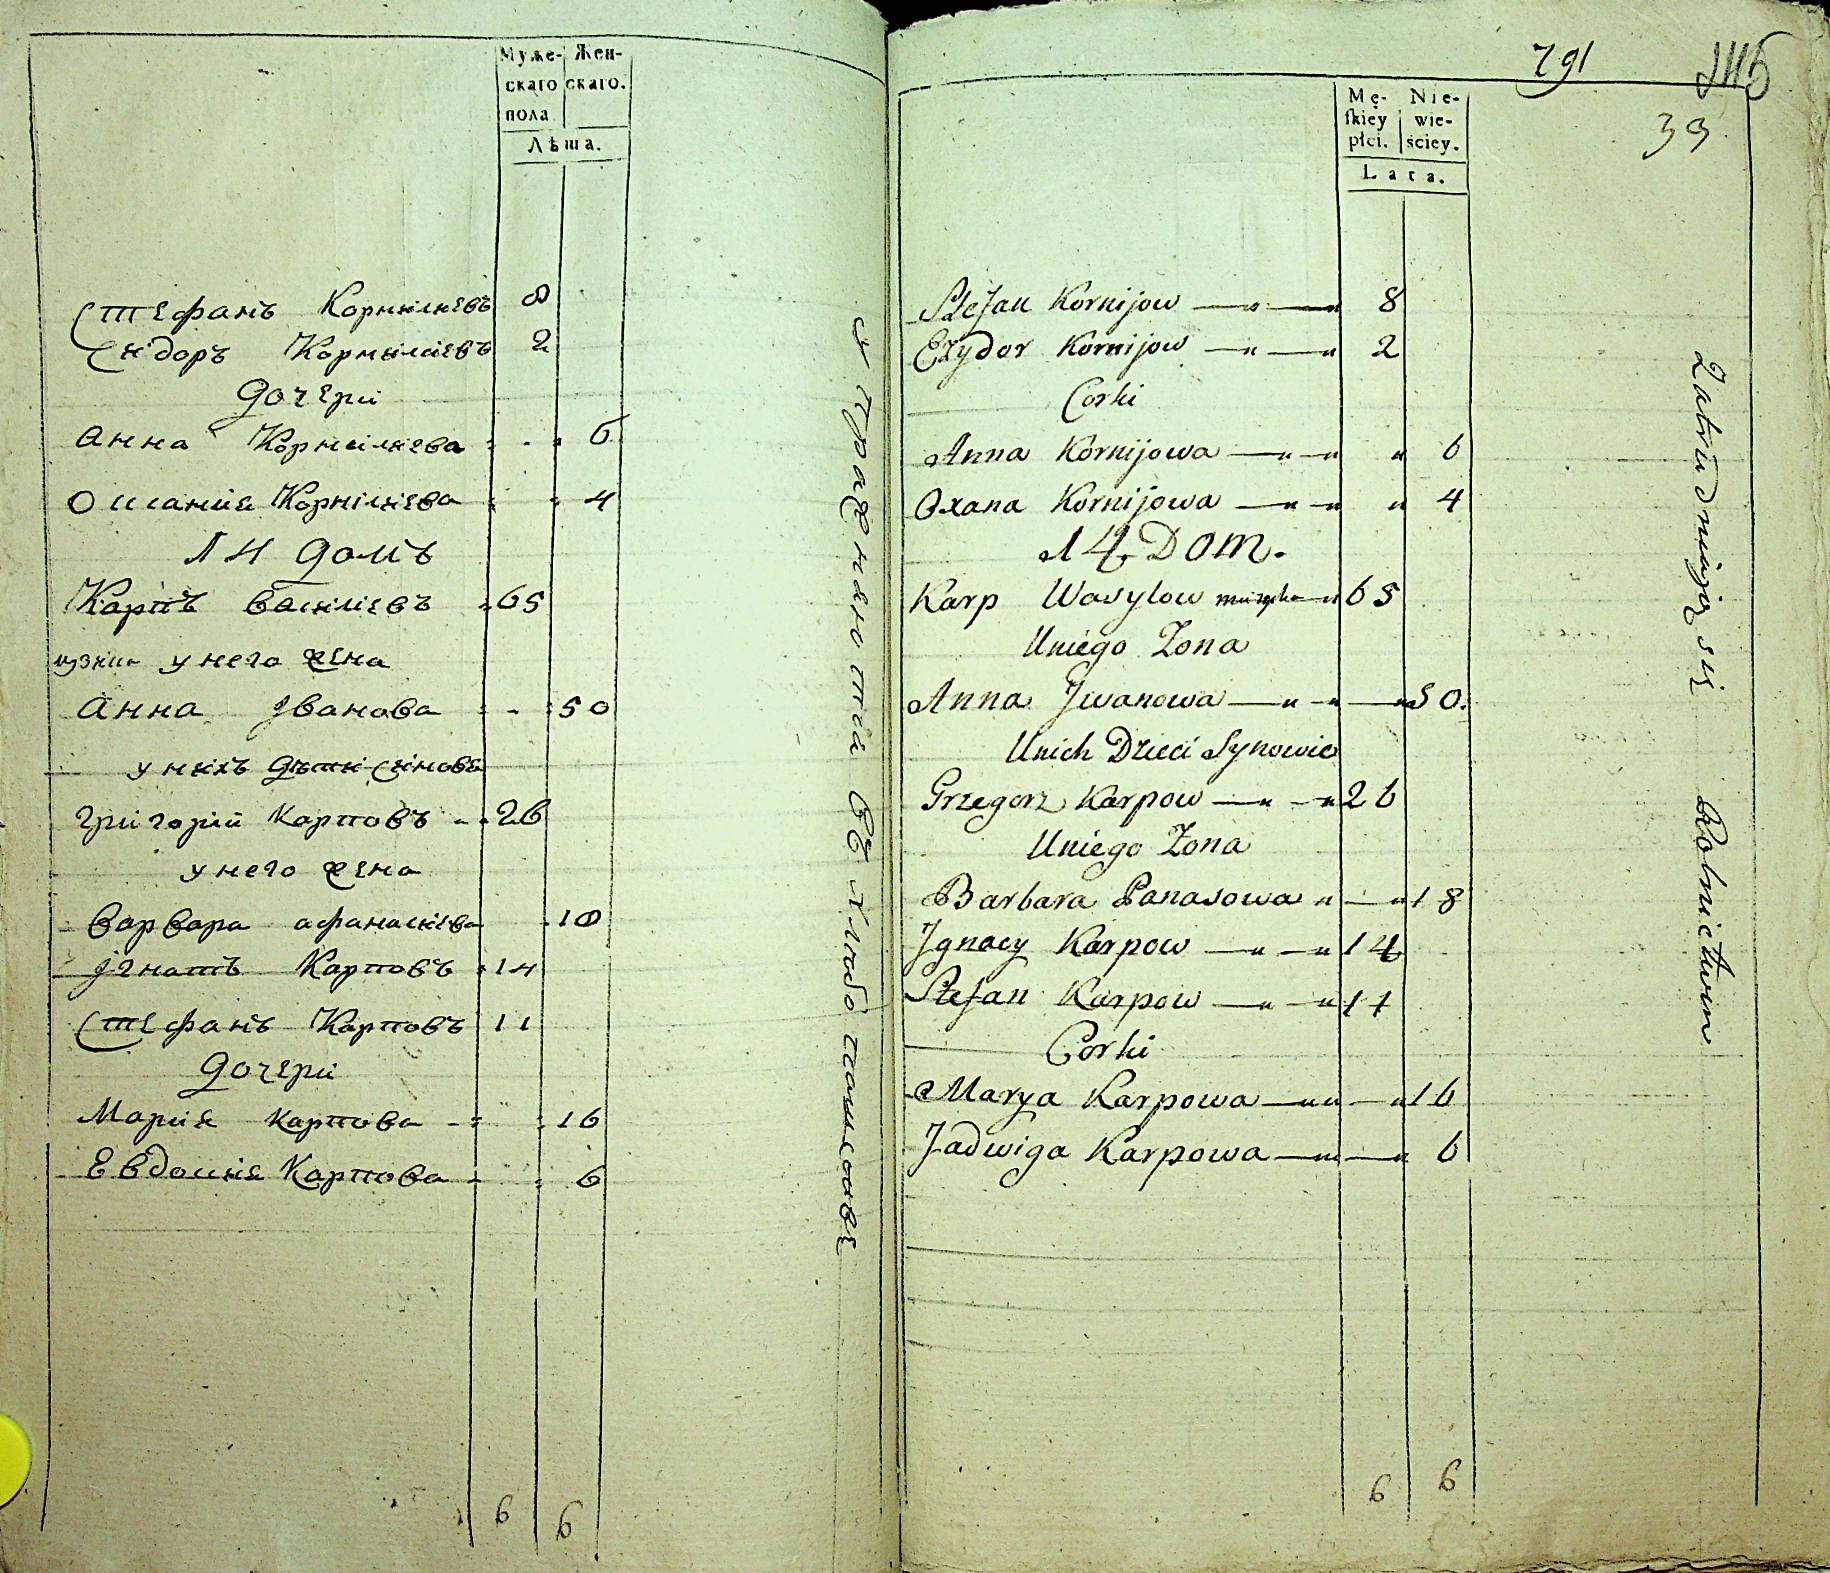 Муже- Жен-
скаго скаго.
пола
Лѣта.
Стефанъ Корнилиевъ 8
Сидоръ Корнилиевъ 2
дочери
анна Корнилиева 6
Оксания Корнилиева 4
14 домъ
Карпъ василиевъ 65
у него жена
анна Іванова 50
у нихъ дѣти синове
григорий Карповъ 26
у него жена
варвара афанасиева 18
Ігнатъ Карповъ 14
Стефанъ Карповъ 11
дочери
Мария Карпова 16
Евдокия Карпова 6
6 6
упражняются въ хлебопашеове
791
39
Mę- Nie-
skiéy wie-
płci. ściey.
Lata.
Stefan Kornijow 8
Exydor Kornijow 2
Corki
Anna Kornijowa 6
Oxana Kornijowa 4
14. Dom.
Karp Wasylow 65
Uniego Zona
Anna Jwanowa 50.
Unich Dzieci Synowie
Grzegorz Karpow 26
Uniego Zona
Barbara Panasowa 18
Jgnacy Karpow 14
Stefan Karpow 11
Corki
Marya Karpowa 16
Jadwiga Karpowa 6
6 6
Zatrudniają się Rolnictwem